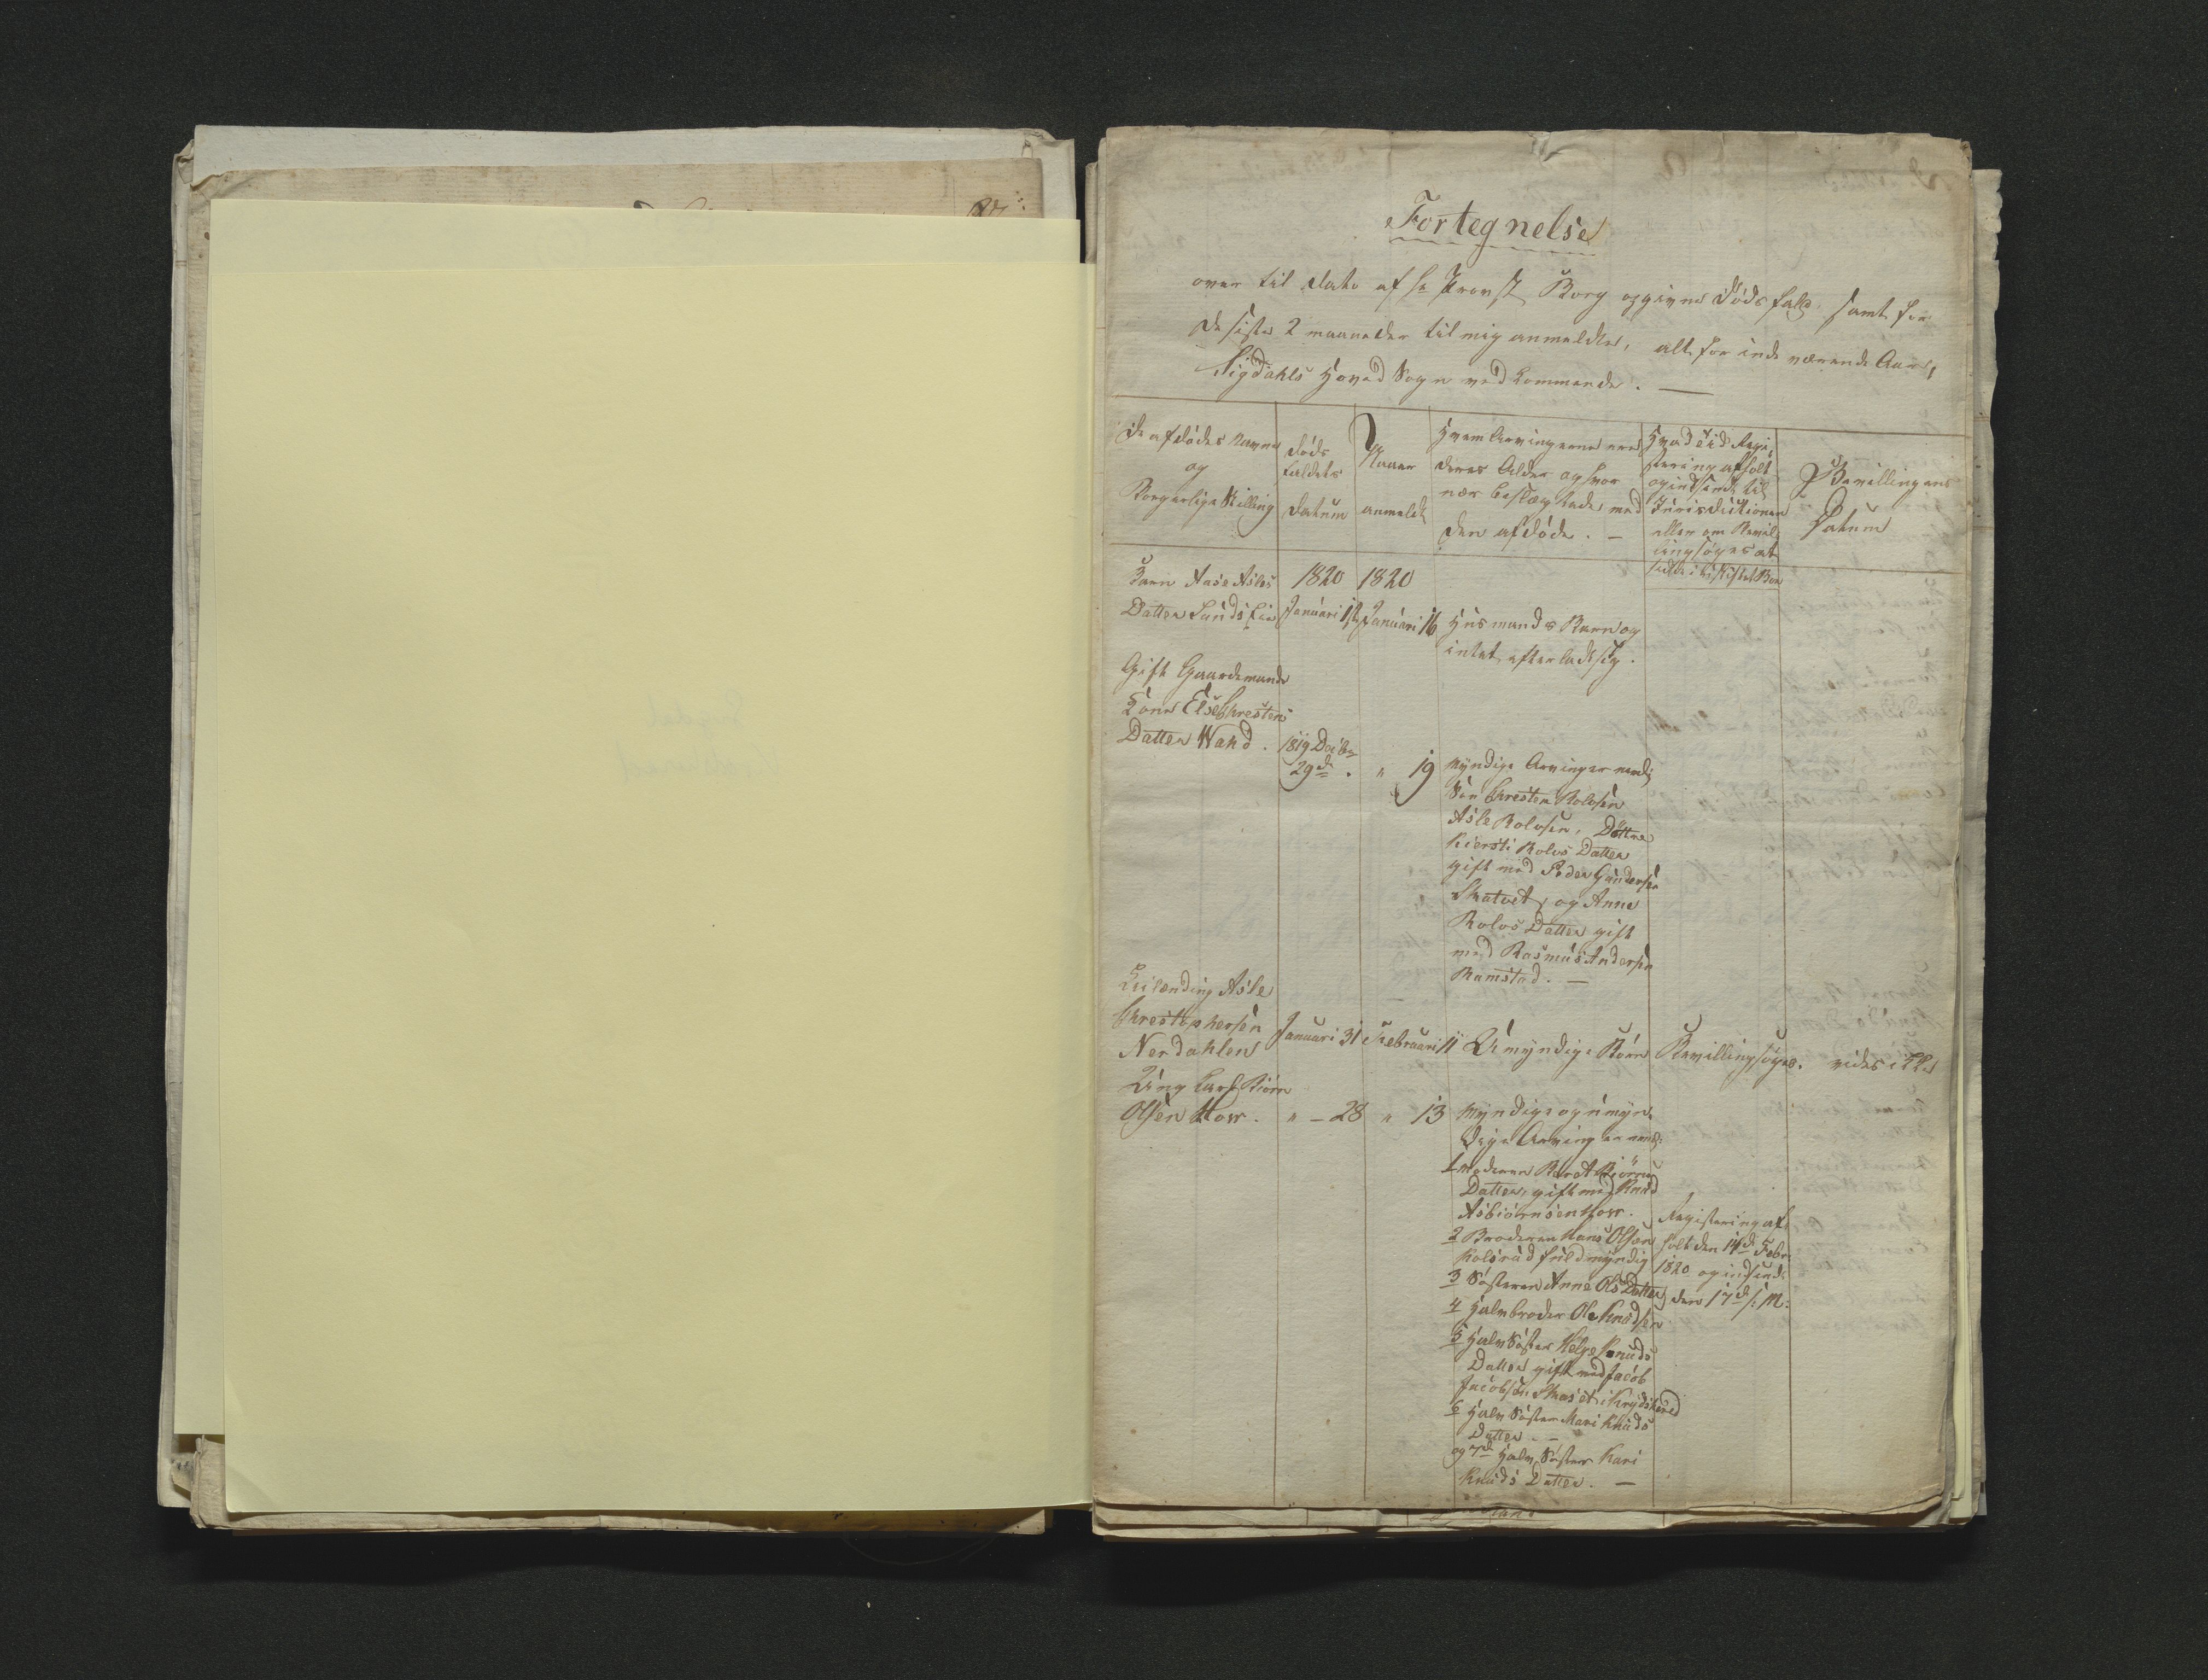 Fortegnelse
over til Dato af Hr Provst Borg opgivne Dødsfald samt for
de siste 2 maaneder til mig anmeldte, alt for inde værende Aar,
Sigdahls Hoved Sogn ved kommende. —
De afdødes Navne
og
Borgerlige Stilling
Døds
faldets
Datum
Naar
anmeldt
Hvem Arvingerne ere
deres Alder og hvor
nær beslægtede med
den afdøde. —
Hvad tid Regi,,
stering afholt
og indsendt til
Jurisdictionen
eller om Bevil,,
ling søges at
sidde i uskiftet Boe
Bevillingens
Datum
Barn Aase Asles
Datter Lunds Eie
1820
Januari 1st
1820
Januari 16
Husmands Barn og
intet efterladt sig.
Gift Gaardemands
Kone Else Christens
Datter Wand.
1819 Decbr
29de.
" 19
Myndige Arvinger nemlig
Søn Christen Rolvsen
Asle Rolvsen, Døttre
Kiersti Rolvs Datter
gift med Peder Gundersen
Skatvet, og Anne
Rolvs Datter gift
med Rasmus Andersen
Ramstad. —
Leilænding Asle
Christophersen
Nerdahlen
Januari 31
Februari 11
Umyndige Børn
Bevilling søges.
vides ikke
Ung Karl Biørn
Olsen Hovr.
" – 28
" 13
Myndige og umyn,,
dige Arvinger neml:
1 Moderen Beret Biørns
Datter, gift med Knud
Asbiørnsen Hovr.
2 Broderen Hans Olsen
Kolsrud fuldmyndig
3 Søsteren Anne Ols Datter
4 Halvbroder Ole Knudsen
5 Halv Søster Helge Knuds
Datter gift med Jacob
Jacobsen i Krydshered
6 Halv Søster Mari Knuds
Datter. —
og 7de Halv Søster Kari
Knuds Datter. —
Registering af,,
holt den 14de Febr:
1820 og indsendt
den 17de s: M: